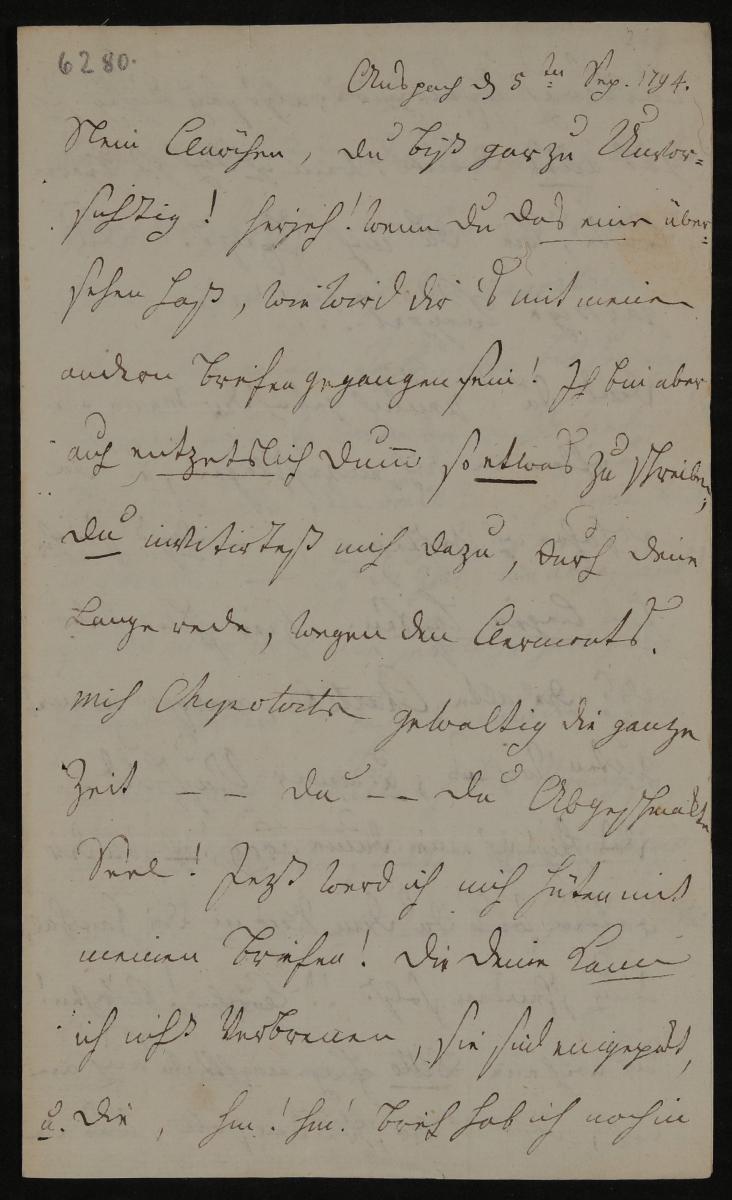 6280.
Anspach d 5ten Sep. 1794.
Mein Clärchen, du bist gar zu Unvor=
sichtig! herjeh! wenn du das eine über=
sehen hast, wie wird dirs mit meinen
andern briefen gegangen sein! Ich bin aber
auch entzetslich dumm so etwas zu schreiben,
du invitirtest mich dazu, durch deine
Lange rede, wegen den Clermonts.
mich gewaltig die ganze
Zeit – – du – – du Abgeschmakte
Seel! Jezt werd ich mich hüten mit
meinen briefen! Die deine kann
ich nicht Verbrenen, sie sind eingepakt,
u. die, hm! hm! brief hab ich noch in